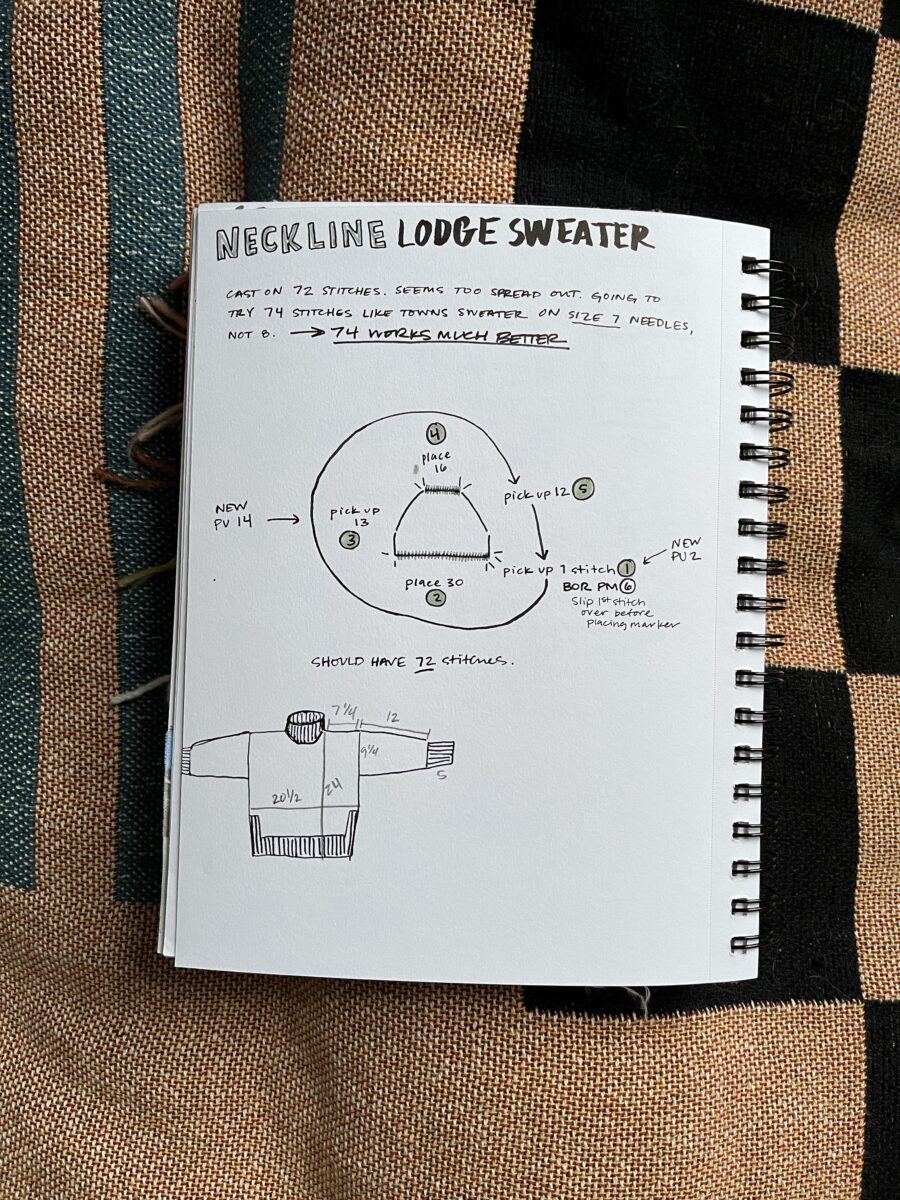 NECKLINE LODGE SWEATER
CAST ON 72 STITCHES. SEEMS TOO SPREAD OUT. GOING TO
TRY 74 STITCHES LIKE TOWNS SWEATER ON SIZE 7 NEEDLES,
NOT 8. → 74 WORKS MUCH BETTER
4
place
16
pick up 12 5
NEW
PU 14 →
pick up
13
3
NEW
PU 2
pick up 1 stitch 1
BOR PM 6
Slip 1st stitch
over before
placing marker
place 30
2
SHOULD HAVE 72 stitches.
7 1/4
12
9 1/4
5
24
20 1/2